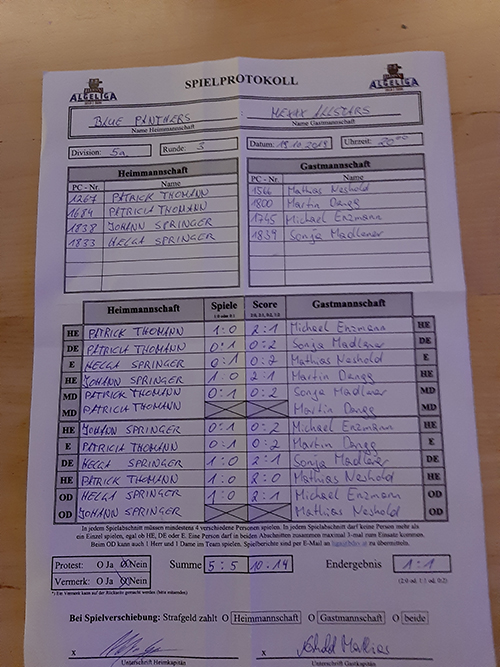 ALGELIGA
SPIELPROTOKOLL
ALGELIGA
BLUE PANTHERS : MEXX ALLSTARS
Name Heimmannschaft Name Gastmannschaft
Division: 5a Runde: 3 Datum: 19.10.2019 Uhrzeit: 20:00
Heimmannschaft Gastmannschaft
PC - Nr. Name PC - Nr. Name
1267 PATRICK THOMANN 1544 Mathias Neshold
1684 PATRICIA THOMANN 1800 Martin Dangg
1838 JOHANN SPRINGER 1745 Michael Enzmann
1833 HELGA SPRINGER 1839 Sonja Madlener
Heimmannschaft Spiele Score Gastmannschaft
HE PATRICK THOMANN 1:0 2:1 Michael Enzmann HE
DE PATRICIA THOMANN 0:1 0:2 Sonja Madlener DE
E HELGA SPRINGER 0:1 0:2 Mathias Neshold E
HE JOHANN SPRINGER 1:0 2:1 Martin Dangg HE
MD PATRICK THOMANN 0:1 0:2 Sonja Madlener MD
MD PATRICIA THOMANN Martin Dangg MD
HE JOHANN SPRINGER 0:1 0:2 Michael Enzmann HE
E PATRICIA THOMANN 0:1 0:2 Martin Dangg E
DE HELGA SPRINGER 1:0 2:1 Sonja Madlener DE
HE PATRICK THOMANN 1:0 2:0 Mathias Neshold HE
OD HELGA SPRINGER 1:0 2:1 Michael Enzmann OD
OD JOHANN SPRINGER Mathias Neshold OD
In jedem Spielabschnitt müssen mindestens 4 verschiedene Personen spielen. In jedem Spielabschnitt darf keine Person mehr als
ein Einzel spielen, egal ob HE, DE oder E. Eine Person darf in beiden Abschnitten zusammen maximal 3-mal zum Einsatz kommen.
Beim OD kann auch 1 Herr und 1 Dame im Team spielen. Spielberichte sind per E-Mail an zu übermitteln.
Protest: O Ja O Nein Summe 5:5 10:14 Endergebnis 1:1
Vermerk: O Ja O Nein (2:0 od. 1:1 od. 0:2)
*) Ein Vermerk kann auf der Rückseite gemacht werden (Bitte mitsenden)
Bei Spielverschiebung: Strafgeld zahlt O Heimmannschaft O Gastmannschaft O beide
x x Neshold Mathias
Unterschrift Heimkapitän Unterschrift Gastkapitän